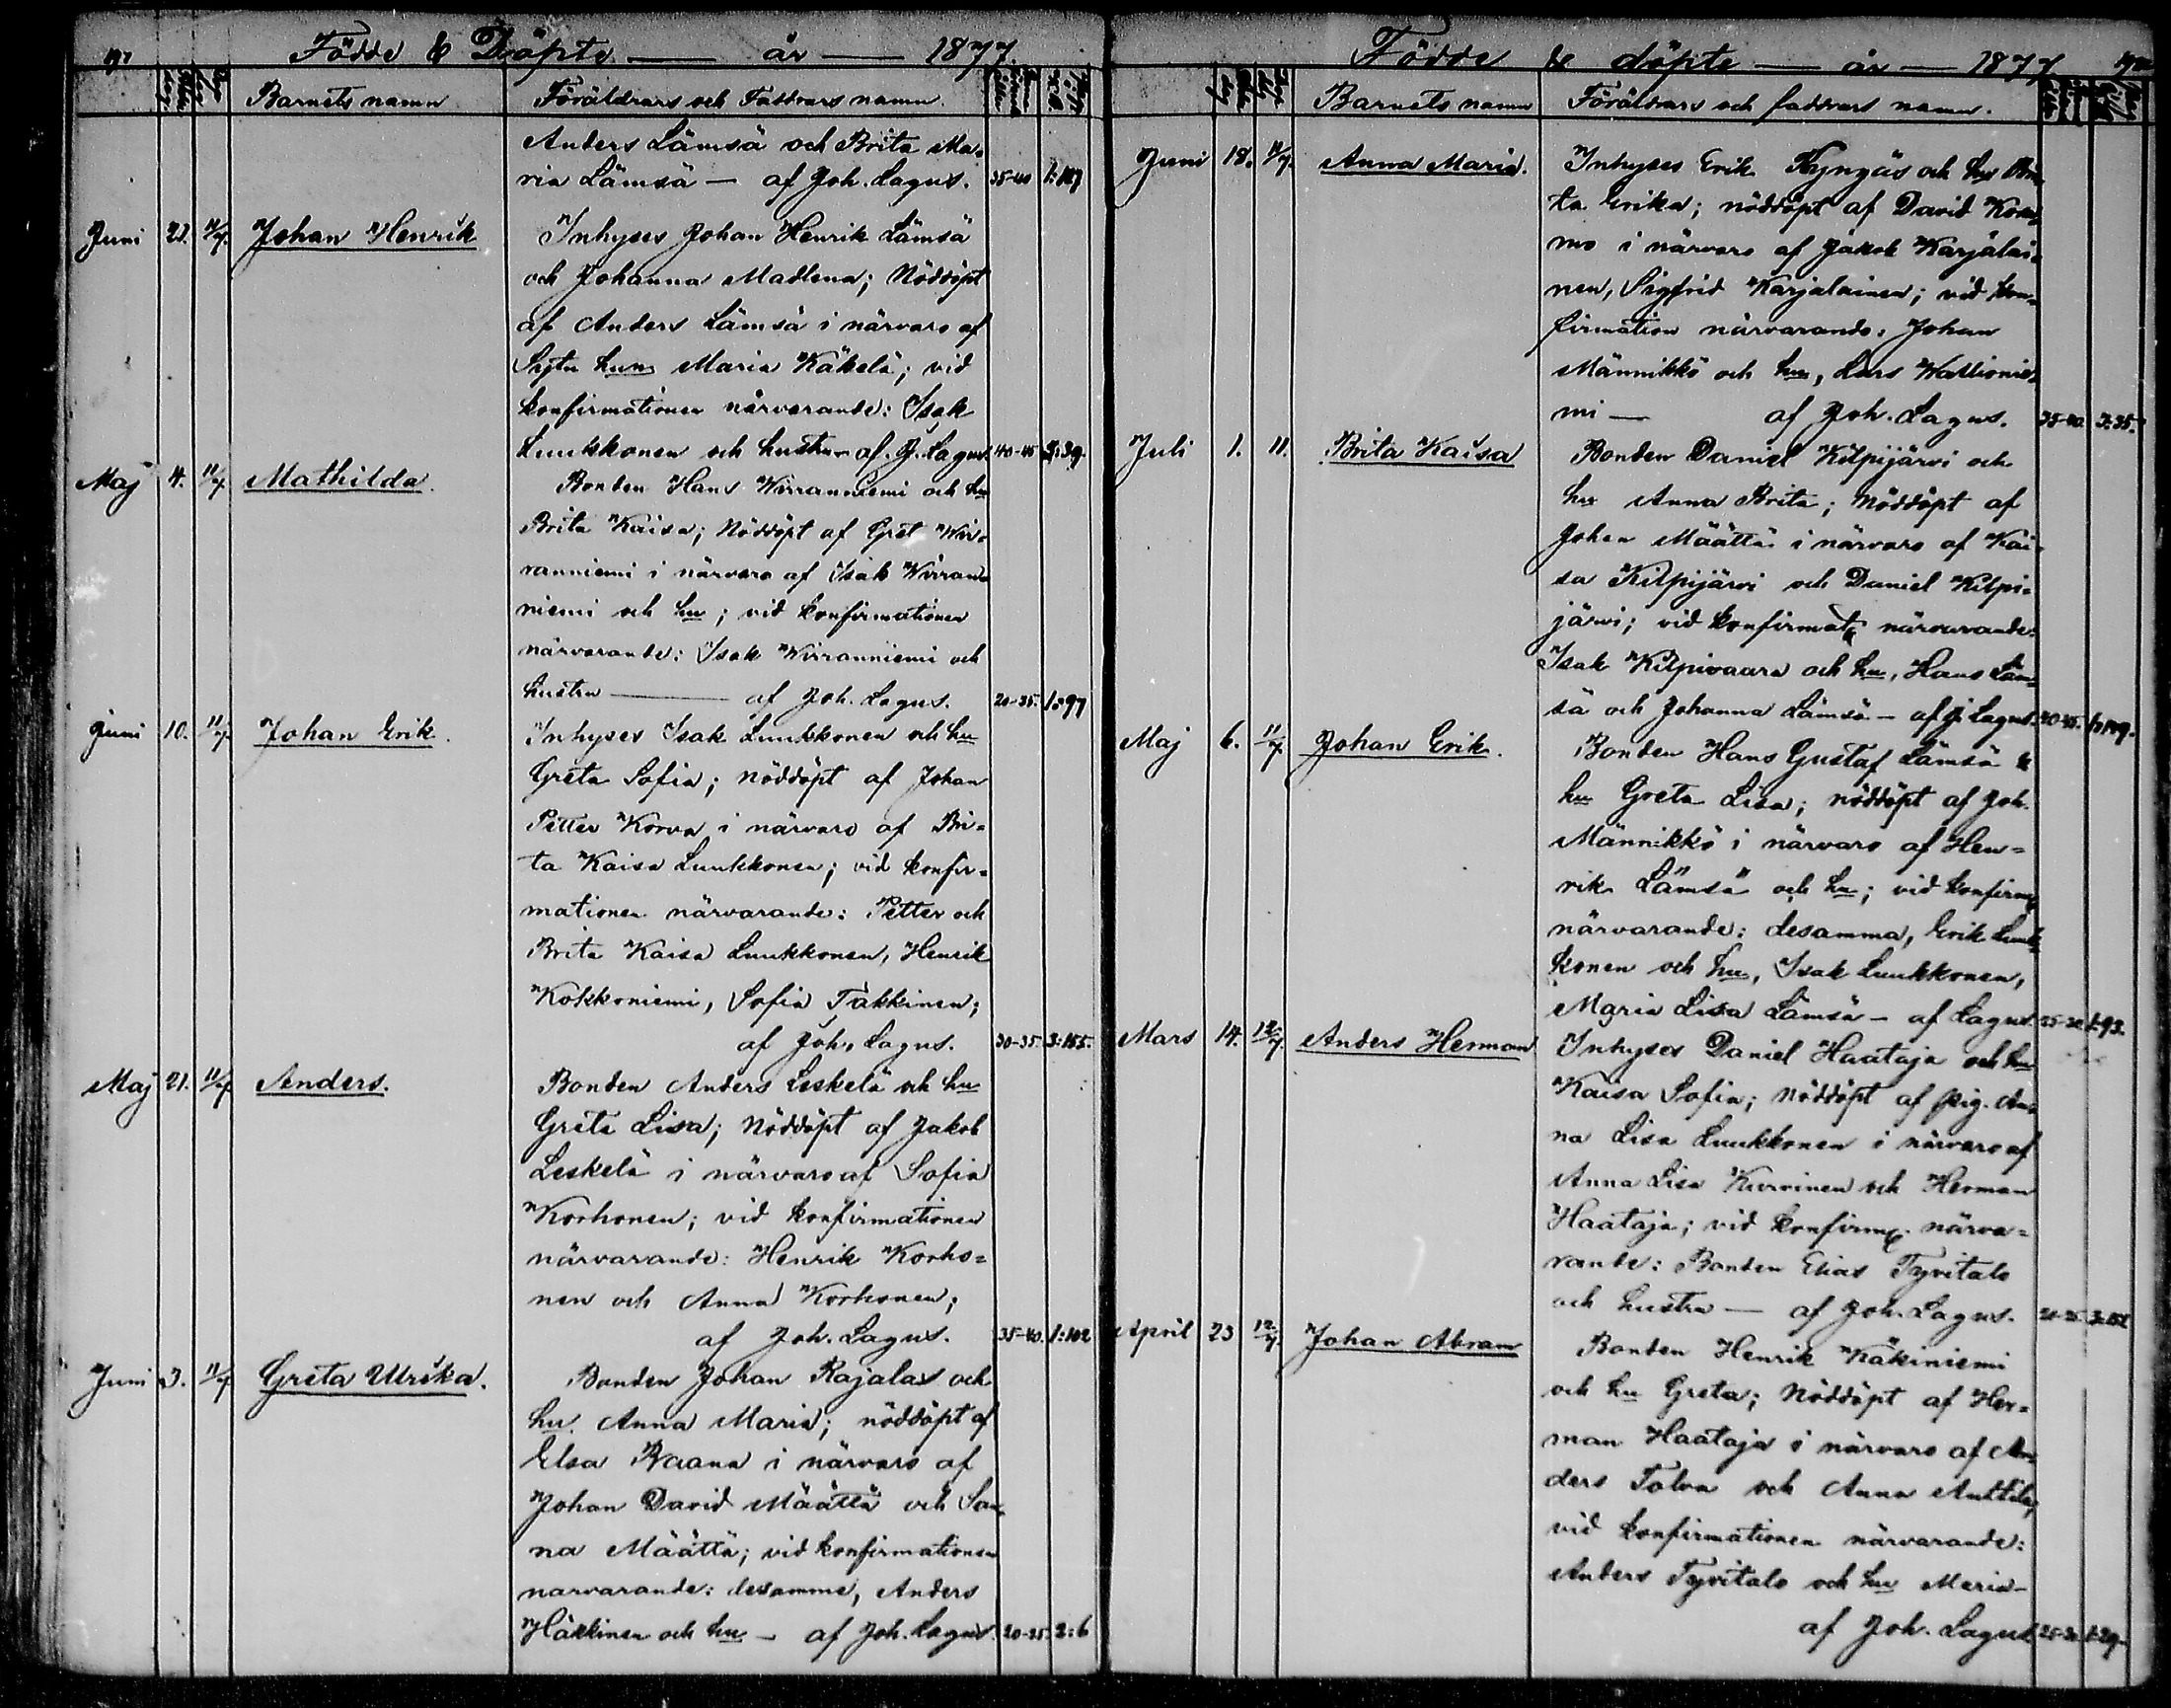 Födde & Döpte — år — 1877.
Barnets namn Föräldrars och Faddrars namn.
Anders Lämsä och Brita Ma=
ria Lämsä — af Joh. Lagus. 35-40 1:167
Juni 22. 11/7. Johan Henrik Inhyses Johan Henrik Lämsä
och Johanna Madlena; Nöddöpt
af Anders Lämsä i närvaro af
hun Maria Käkelä; vid
konfirmationen närvarande: Isak
Luukkonen och hustrun af J. Lagus. 40-45 3:39.
Maj 4. 11/7. Mathilda. Bonden Hans Wirranniemi och hu
Brita Kaisa; Nöddöpt af Gret Wir=
ranniemi i närvaro af Isak Wirran=
niemi och hu; vid konfirmationen
närvarande: Isak Wirranniemi och
hustru — af Joh. Lagus. 20-35. 1:97
Juni 10. 11/7. Johan Erik. Inhyses Isak Luukkonen och hu
Greta Sofia; nöddöpt af Johan
Petter Korva i närvaro af Bri=
ta Kaisa Luukkonen; vid konfir=
mationen närvarande: Petter och
Brita Kaisa Luukkonen, Henrik
Kokkoniemi, Sofia Takkinen;
af Joh. Lagus. 30-35. 3:155.
Maj 21. 11/7 Anders. Bonden Anders Leskelä och hu
Greta Lisa; Nöddöpt af Jakob
Leskelä i närvaro af Sofia
Korhonen; vid konfirmationen
närvarande: Henrik Korho=
nen och Anna Korhonen;
af Joh. Lagus. 35-40. 1:102
Juni 3. 11/7 Greta Ulrika. Bonden Johan Rajala och
hu. Anna Maria; nöddöpt af
Elsa i närvaro af
Johan David Määttä och San=
na Määttä; vid konfirmationen
närvarande: desamme, Anders
Häkkinen och hu — af Joh. Lagus. 20-25. 2:6
Födde & döpte — år — 1877
Barnets namn Föräldrars och faddrars namn.
Juni 18. 11/7. Anna Maria. Inhyses Erik Kyngäs och hu Bri=
ta Erika; nöddöpt af David
mo i närvaro af Jakob Karjalai=
nen, Sigfrid Karjalainen; vid kon=
firmation närvarande: Johan
Männikkö och hu, Lars Wallionie=
mi — af Joh. Lagus. 35-40. 3:35.
Juli 1. 11. Brita Kaisa Bonden Daniel Kilpijärvi och
hu Anna Brita; Nöddöpt af
Johan Määttä i närvaro af Kai=
sa Kilpijärvi och Daniel Kilpi=
järvi; vid konfirmat närvarande:
Isak Kilpivaara och hu, Hans Läm=
sä och Johanna Lämsä — af J. Lagus.
Maj 6. 11/7. Johan Erik. Bonden Hans Gustaf Lämsä &
hu Greta Lisa; nöddöpt af Joh.
Männikkö i närvaro af Hen=
rik Lämsä och hu; vid konfirm
närvarande: desamma, Erik Luuk=
konen och hu, Isak Luukkonen,
Maria Lisa Lämsä — af Lagus. 1:93.
Mars 14. 12/7. Anders Herman Inhyses Daniel Haataja och hu
Kaisa Sofia; Nöddöpt af pig. An=
na Lisa Luukkonen i närvaro af
Anna Lisa Kurvinen och Herman
Haataja; vid konfirm. närva=
rande: Bonden Elias Tyvitalo
och hustru — af Joh. Lagus.
April 23 12/7. Johan Abram Bonden Henrik Käkiniemi
och hu Greta; Nöddöpt af Her=
man Haataja i närvaro af An=
ders Tolva och Anna Anttila;
vid konfirmationen närvarande:
Anders Tyvitalo och hu Maria —
af Joh. Lagus. 1:29.